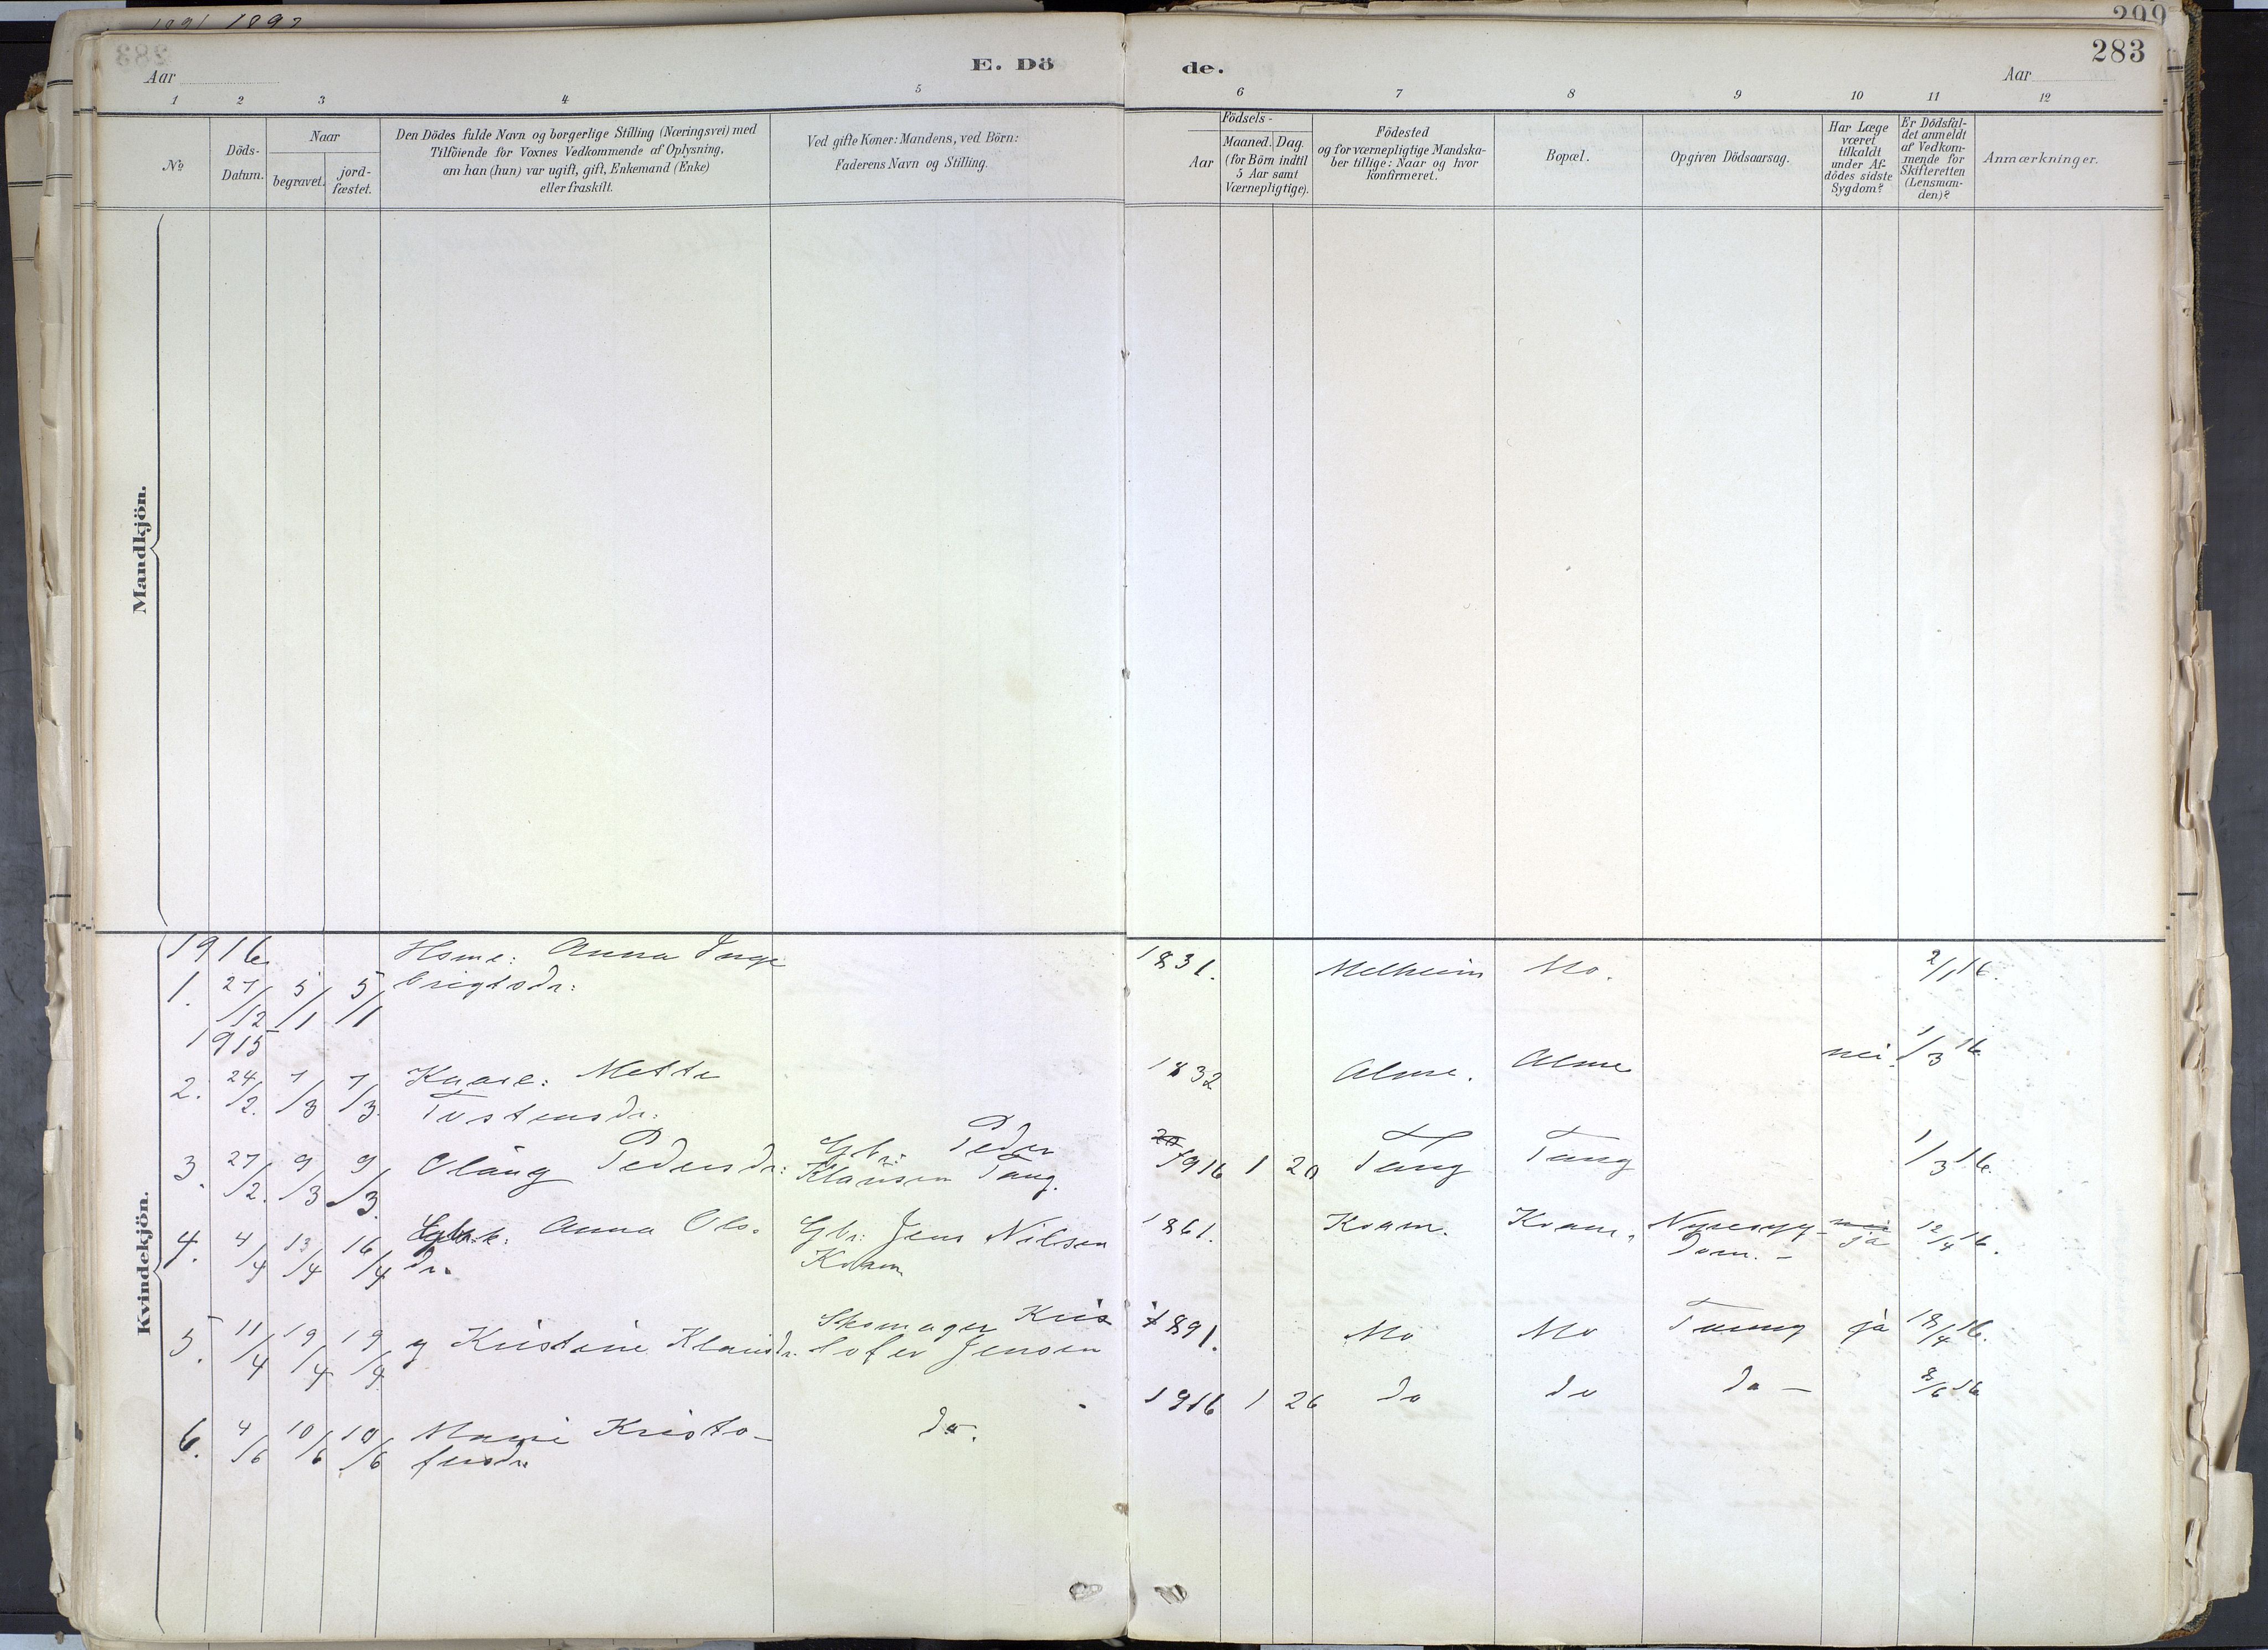 1891 1892
299
283
Aar
E. Dö
de.
Aar
1 2 3 4 5 6 7 8 9 10 11 12
No
Döds-
Datum.
Naar
begravet.
jord-
fæstet.
Den Dödes fulde Navn og borgerlige Stilling (Næringsvei) med
Tilföiende for Voxnes Vedkommende af Oplysning,
om han (hun) var ugift, gift, Enkemand (Enke)
eller fraskilt.
Ved gifte Koner: Mandens, ved Börn:
Faderens Navn og Stilling.
Födsels-
Aar
Maaned. Dag.
(for Börn indtil
5 Aar samt
Værnepligtige).
Födested
og for værnepligtige Mandska-
ber tillige: Naar og hvor
konfirmeret.
Bopæl.
Opgiven Dödsaarsag.
Har Læge
været
tilkaldt
under Af-
dödes sidste
Sygdom?
Er Dödsfal-
det anmeldt
af Vedkom-
mende for
Skifteretten
(Lensman-
den)?
Anmærkninger.
Mandkjön.
Kvindekjön.
1916
1. 27/12 5/1 5/1 Hsme: Anna Inge
brigtsdr: 1831. Melheim Mo. 2/1 16.
1915
2. 24/2. 1/3 1/3. Kaare: Mette
Tostensdr: 1832 Alme. Alme nei. 1/3 16
3. 27/2. 9/3 9/3. Olaug Pedersdr: Gbr: Peder
Klausen Tang. 1916 1 20 Tang Tang 1/3 16.
4. 4/4 13/4 16/4 Gbrk: Anna Ols-
dr. Gbr: Jens Nilsen
Kvam 1861. Kvam. Kvam. Nyresyg-
dom. - nei ja 12/4 16.
5. 11/4 19/4 19/4 g Kristine Klausdr. Skomager Kris
tofer Jensen 1891. Mo Mo Tæring ja 18/4 16.
6. 4/6 10/6 10/6 Marie Kristo-
fersdr. do. 1916 1 26 do do do - 8/6 16